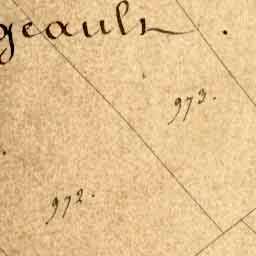 geault.
973.
972.